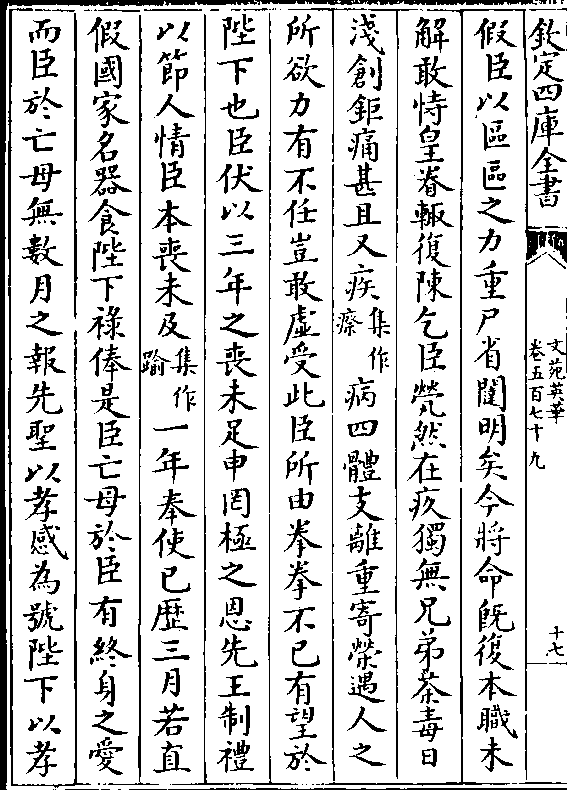 欽定四庫全書
文苑英華
卷五百七十九
十七
假臣以區區之力重尸省闥明矣今將命旣復本職未
解敢恃皇眷輙復陳乞臣煢然在疚獨無兄弟荼毒日
淺創鉅痛甚且又疾集作瘵病四體支離重寄榮遇人之
所欲力有不任豈敢虛受此臣所由拳拳不已有望於
陛下也臣伏以三年之喪未足申罔極之恩先王制禮
以節人情臣本喪未及集作踰一年奉使已歴三月若直
假國家名器食陛下祿俸是臣亡母於臣有終身之愛
而臣於亡母無數月之報先聖以孝感為號陛下以孝